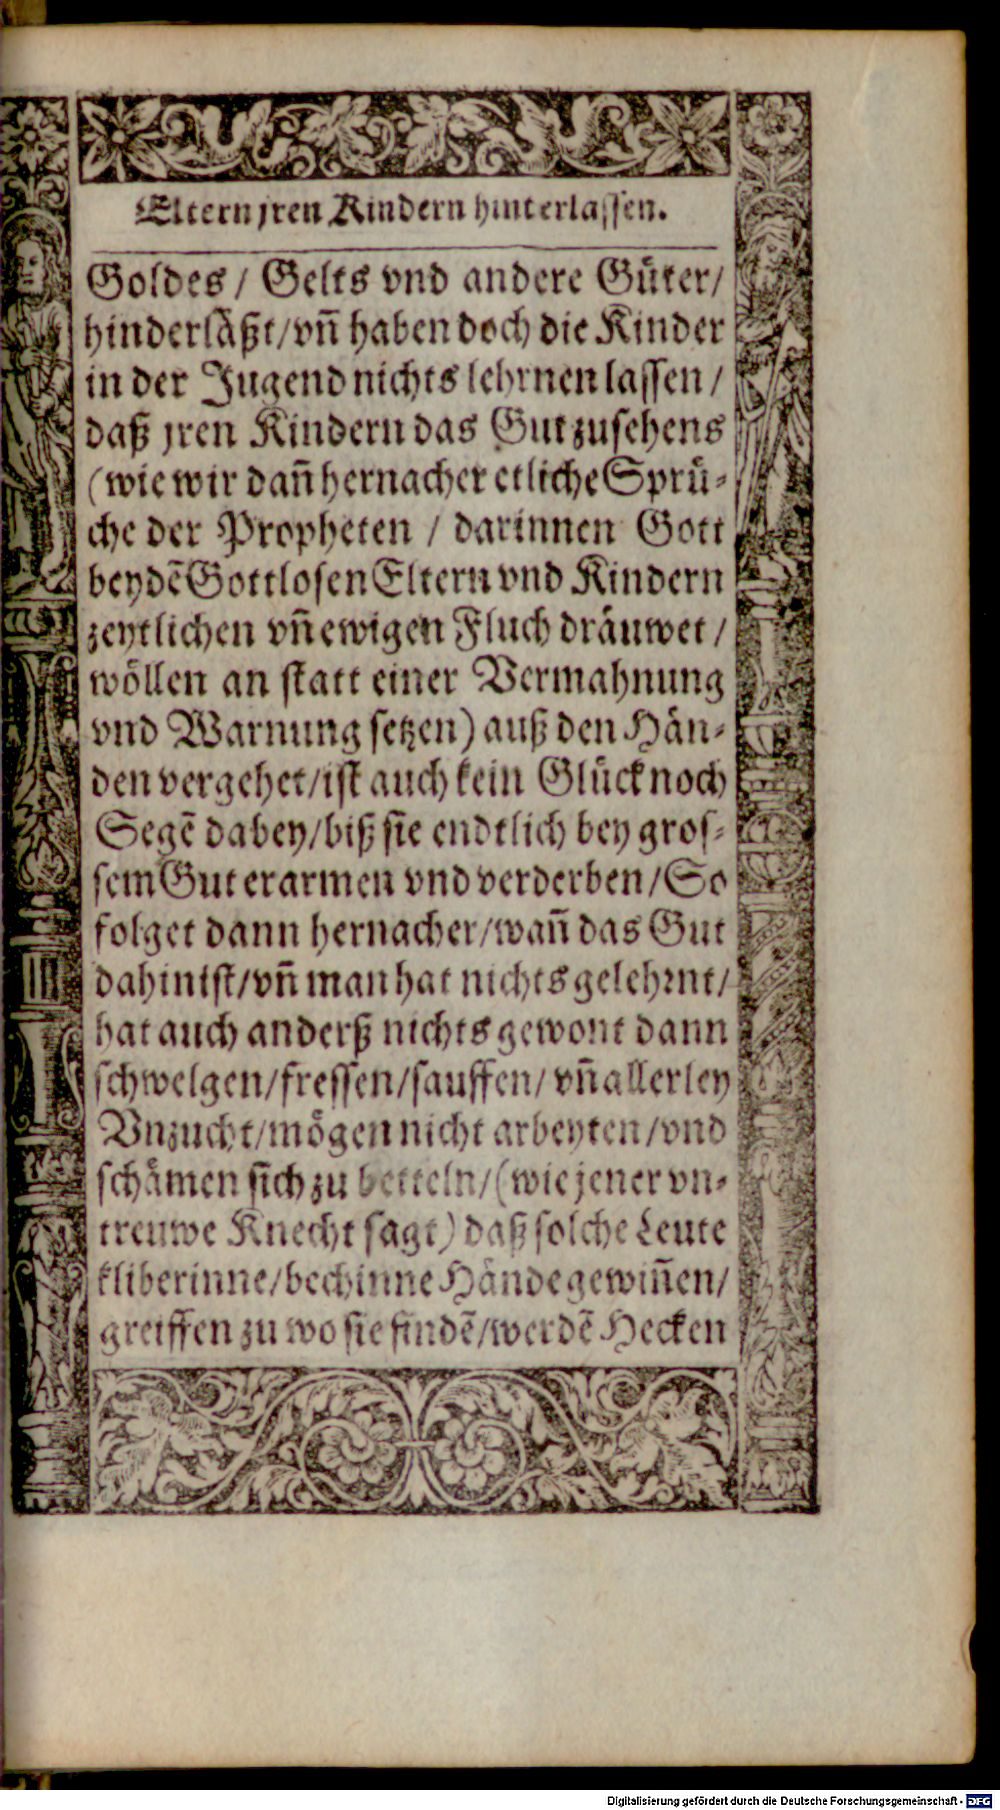 Eltern jren Kindern hinterlassen.
Goldes / Gelts vnd andere Güter/
hinderläßt/vñ haben doch die Kinder
in der Jugend nichts lehrnen lassen /
daß jren Kindern das Gut zusehens
(wie wir dañ hernacher etliche Sprü-
che der Propheten / darinnen Gott
beydẽ Gottlosen Eltern vnd Kindern
zeytlichen vñ ewigen Fluch dräuwet /
wöllen an statt einer Vermahnung
vnd Warnung setzen) auß den Hän-
den vergehet/ist auch kein Glück noch
Segẽ dabey/biß sie endtlich bey gros-
sem Gut erarmen vnd verderben/So
folget dann hernacher/wañ das Gut
dahin ist/vñ man hat nichts gelehrnt/
hat auch anderß nichts gewont dann
schwelgen/fressen/sauffen/ vñ allerley
Vnzucht/mögen nicht arbeyten/vnd
schämen sich zu betteln/(wie jener vn-
treuwe Knecht sagt) daß solche Leute
kliberinne/bechinne Hände gewiñen/
greiffen zu wo sie findẽ/werdẽ Hecken
Digitalisierung gefördert durch die Deutsche Forschungsgemeinschaft - DFG